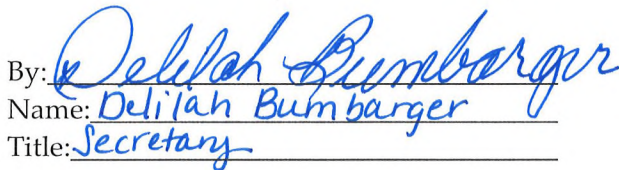 By: Delilah Bumbarger
Name: Delilah Bumbarger
Title: Secretary